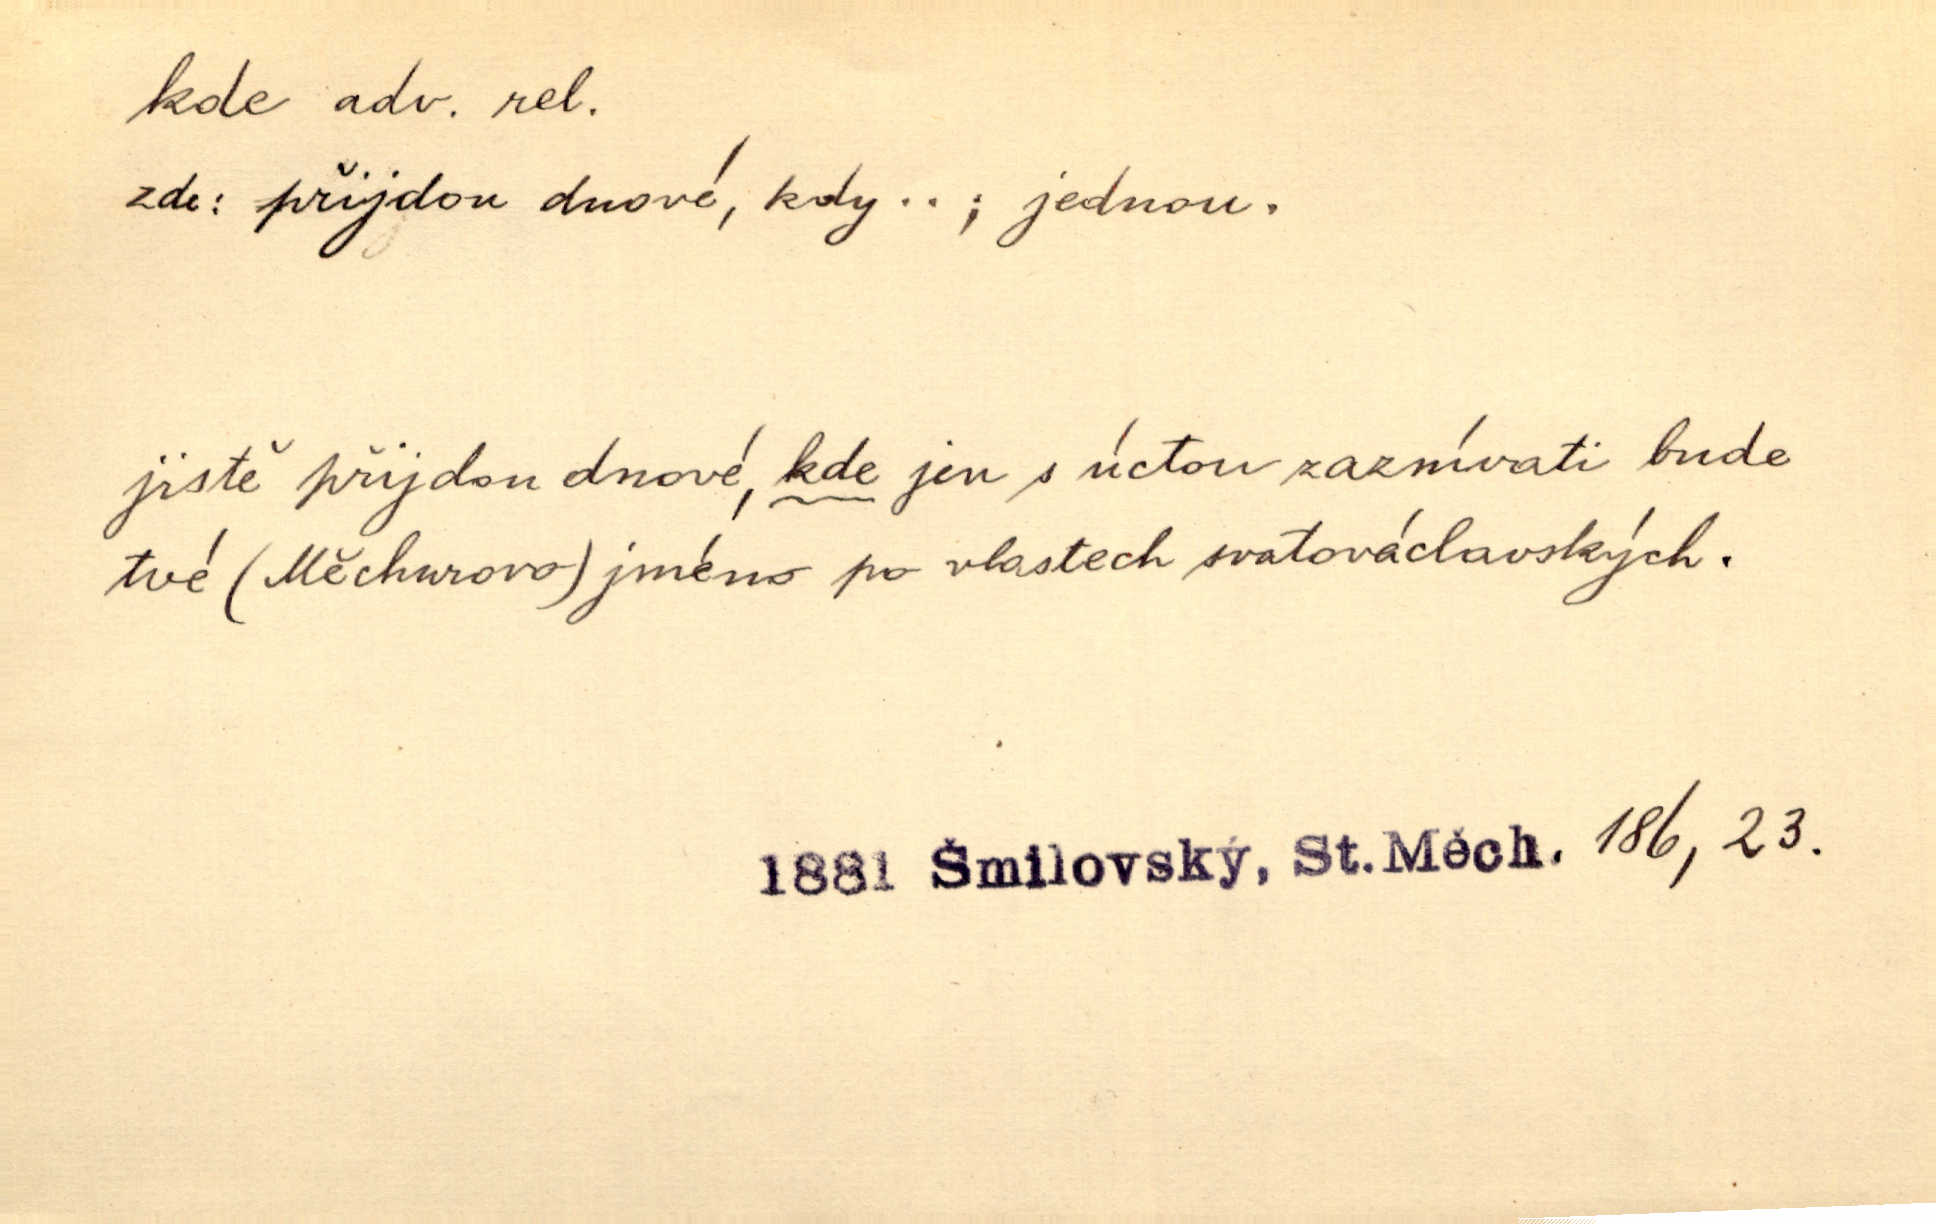 kde adv. rel.
zde: přijdou dnové, kdy..; jednou.
jistě přijdou dnové, kde jen s úctou zaznívati bude
tvé (Měchurovo) jméno po vlastech svatováclavských.
1881 Šmilovský, St. Měch. 186, 23.